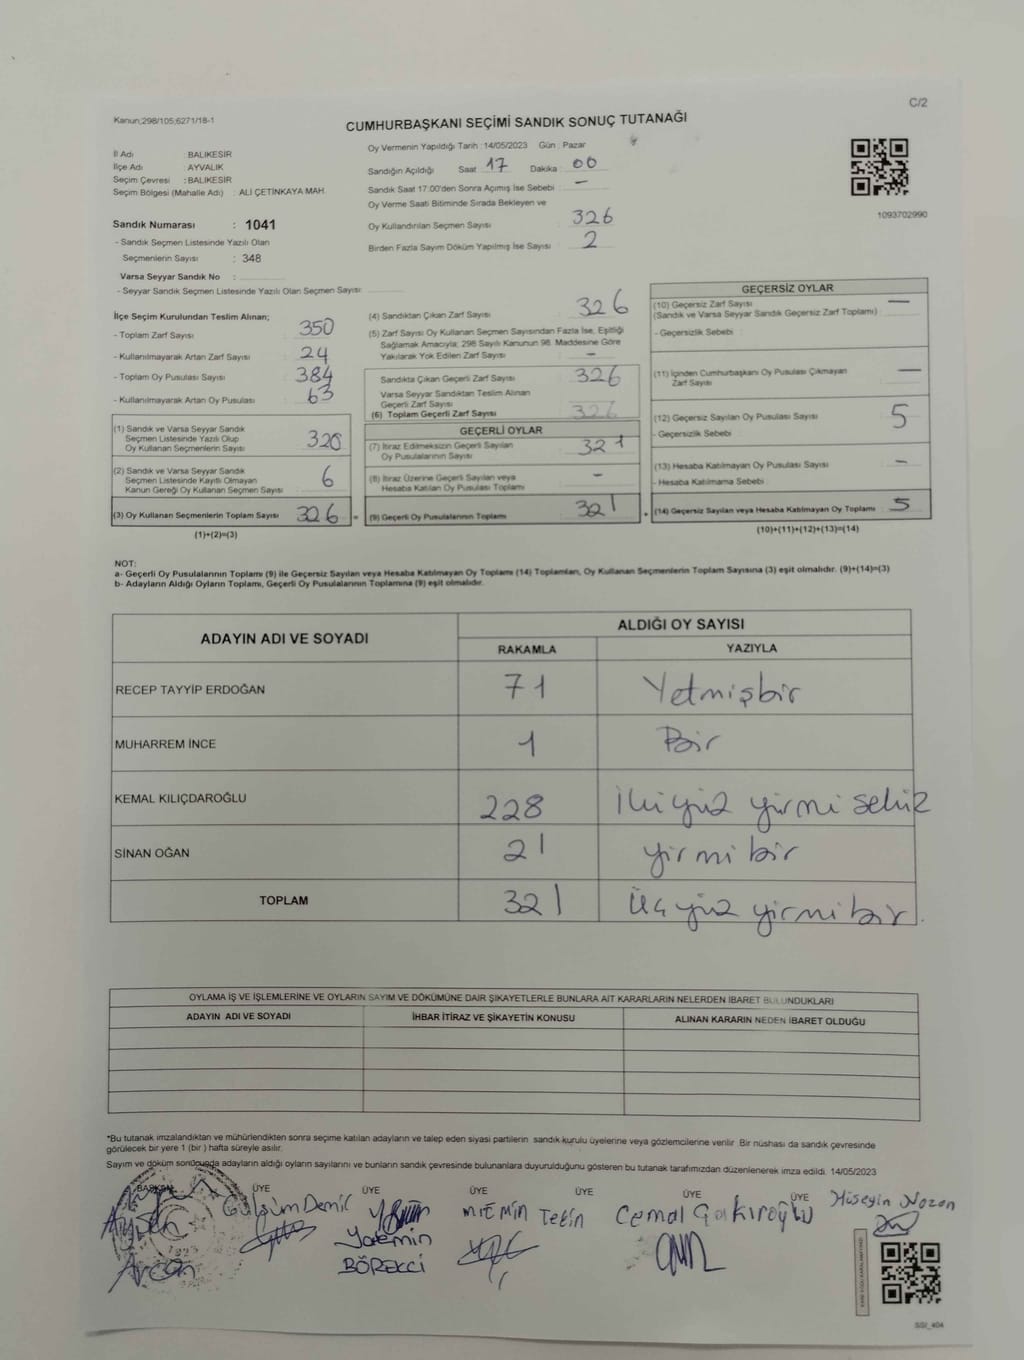 C/2
Kanun;298/105;6271/18-1
CUMHURBAŞKANI SEÇİMİ SANDIK SONUÇ TUTANAĞI
İl Adı : BALIKESİR
İlçe Adı : AYVALIK
Seçim Çevresi : BALIKESİR
Seçim Bölgesi (Mahalle Adı) : ALİ ÇETİNKAYA MAH.
Sandık Numarası : 1041
- Sandık Seçmen Listesinde Yazılı Olan
Seçmenlerin Sayısı : 348
Varsa Seyyar Sandık No :
- Seyyar Sandık Seçmen Listesinde Yazılı Olan Seçmen Sayısı:
Oy Vermenin Yapıldığı Tarih :14/05/2023 Gün : Pazar
Sandığın Açıldığı Saat 17 Dakika : 00
Sandık Saat 17:00'den Sonra Açımış İse Sebebi : —
Oy Verme Saati Bitiminde Sırada Bekleyen ve
Oy Kullandırılan Seçmen Sayısı 326
Birden Fazla Sayım Döküm Yapılmış İse Sayısı : 2
1093702990
İlçe Seçim Kurulundan Teslim Alınan;
- Toplam Zarf Sayısı : 350
- Kullanılmayarak Artan Zarf Sayısı : 24
- Toplam Oy Pusulası Sayısı : 384
- Kullanılmayarak Artan Oy Pusulası : 63
(1) Sandık ve Varsa Seyyar Sandık
Seçmen Listesinde Yazılı Olup
Oy Kullanan Seçmenlerin Sayısı : 320
(2) Sandık ve Varsa Seyyar Sandık
Seçmen Listesinde Kayıtlı Olmayan
Kanun Gereği Oy Kullanan Seçmen Sayısı : 6
(3) Oy Kullanan Seçmenlerin Toplam Sayısı : 326
(1)+(2)=(3)
(4) Sandıktan Çıkan Zarf Sayısı : 326
(5) Zarf Sayısı Oy Kullanan Seçmen Sayısından Fazla İse, Eşitliği
Sağlamak Amacıyla; 298 Sayılı Kanunun 98. Maddesine Göre
Yakılarak Yok Edilen Zarf Sayısı : —
Sandıkta Çıkan Geçerli Zarf Sayısı : 326
Varsa Seyyar Sandıktan Teslim Alınan
Geçerli Zarf Sayısı
(6) Toplam Geçerli Zarf Sayısı : 326
GEÇERLİ OYLAR
(7) İtiraz Edilmeksizin Geçerli Sayılan
Oy Pusulalarının Sayısı : 321
(8) İtiraz Üzerine Geçerli Sayılan veya
Hesaba Katılan Oy Pusulası Toplamı : —
(9) Geçerli Oy Pusulalarının Toplamı : 321
GEÇERSİZ OYLAR
(10) Geçersiz Zarf Sayısı : —
(Sandık ve Varsa Seyyar Sandık Geçersiz Zarf Toplamı)
- Geçersizlik Sebebi :
(11) İçinden Cumhurbaşkanı Oy Pusulası Çıkmayan
Zarf Sayısı : —
(12) Geçersiz Sayılan Oy Pusulası Sayısı : 5
- Geçersizlik Sebebi :
(13) Hesaba Katılmayan Oy Pusulası Sayısı : —
- Hesaba Katılmama Sebebi :
(14) Geçersiz Sayılan veya Hesaba Katılmayan Oy Toplamı : 5
(10)+(11)+(12)+(13)=(14)
NOT:
a- Geçerli Oy Pusulalarının Toplamı (9) ile Geçersiz Sayılan veya Hesaba Katılmayan Oy Toplamı (14) Toplamları, Oy Kullanan Seçmenlerin Toplam Sayısına (3) eşit olmalıdır. (9)+(14)=(3)
b- Adayların Aldığı Oyların Toplamı, Geçerli Oy Pusulalarının Toplamına (9) eşit olmalıdır.
ADAYIN ADI VE SOYADI ALDIĞI OY SAYISI
RAKAMLA YAZIYLA
RECEP TAYYİP ERDOĞAN 71 Yetmişbir
MUHARREM İNCE 1 Bir
KEMAL KILIÇDAROĞLU 228 İkiyüz yirmi sekiz
SİNAN OĞAN 21 yirmi bir
TOPLAM 321 Üçyüz yirmi bir.
OYLAMA İŞ VE İŞLEMLERİNE VE OYLARIN SAYIM VE DÖKÜMÜNE DAİR ŞİKAYETLERLE BUNLARA AİT KARARLARIN NELERDEN İBARET BULUNDUKLARI
ADAYIN ADI VE SOYADI İHBAR İTİRAZ VE ŞİKAYETİN KONUSU ALINAN KARARIN NEDEN İBARET OLDUĞU
*Bu tutanak imzalandıktan ve mühürlendikten sonra seçime katılan adayların ve talep eden siyasi partilerin sandık kurulu üyelerine veya gözlemcilerine verilir. Bir nüshası da sandık çevresinde
görülecek bir yere 1 (bir ) hafta süreyle asılır.
Sayım ve döküm sonucunda adayların aldığı oyların sayılarını ve bunların sandık çevresinde bulunanlara duyurulduğunu gösteren bu tutanak tarafımızdan düzenlenerek imza edildi. 14/05/2023
BAŞKAN ÜYE ÜYE ÜYE ÜYE ÜYE ÜYE
Gülşüm Demir
M.EMİN Tekin
Cemal Çakıroğlu
Hüseyin Nozon
Yasemin
BÖREKCİ
1923
SSI_404